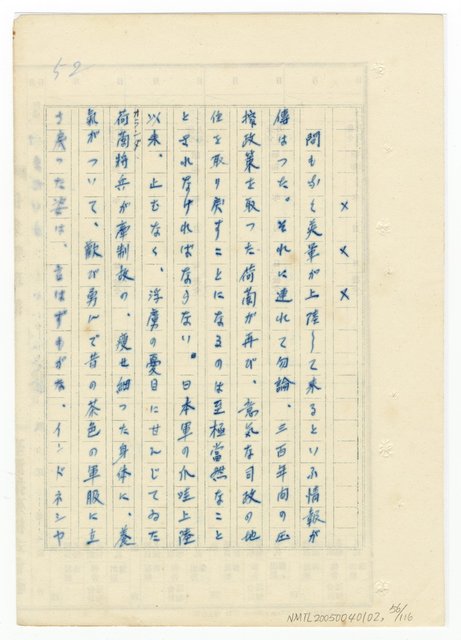 52
× × ×
間もなく英軍が上陸して来るといふ情報が
傳はつた。それに連れて勿論、三百年间の圧
搾政策を取つた荷蘭が再び、意気な司政の地
位を取り戻すことになるのは至極當然なこと
とされなければならない。日本軍の爪哇上陸
以来、止むなく、浮虜の憂目にせんじてゐた
荷蘭将兵が
オランダ
制故の、痩せ細つた身体に、養
氣がついて、歓び勇んで昔の茶色の軍服に立
戻つた姿は、言はずもがな、インドネシヤ
NMTL20050040102, 56/116